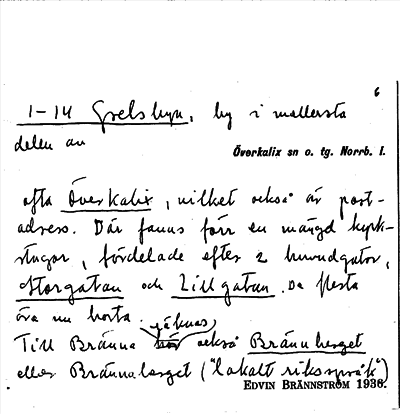 6
1-14 Grelsbyn, by i mellersta
delen av
Överkalix sn o. tg. Norrb. l.
ofta Överkalix, vilket också är post-
adress. Där fanns förr en mängd kyrk-
stugor, fördelade efter 2 huvudgator,
Storgatan och Lillgatan. De flesta
äro nu borta.
räknas
Till Bränna hör också Brännberget
eller Brännaberget ("lokalt riksspråk")
EDVIN BRÄNNSTRÖM 1936.